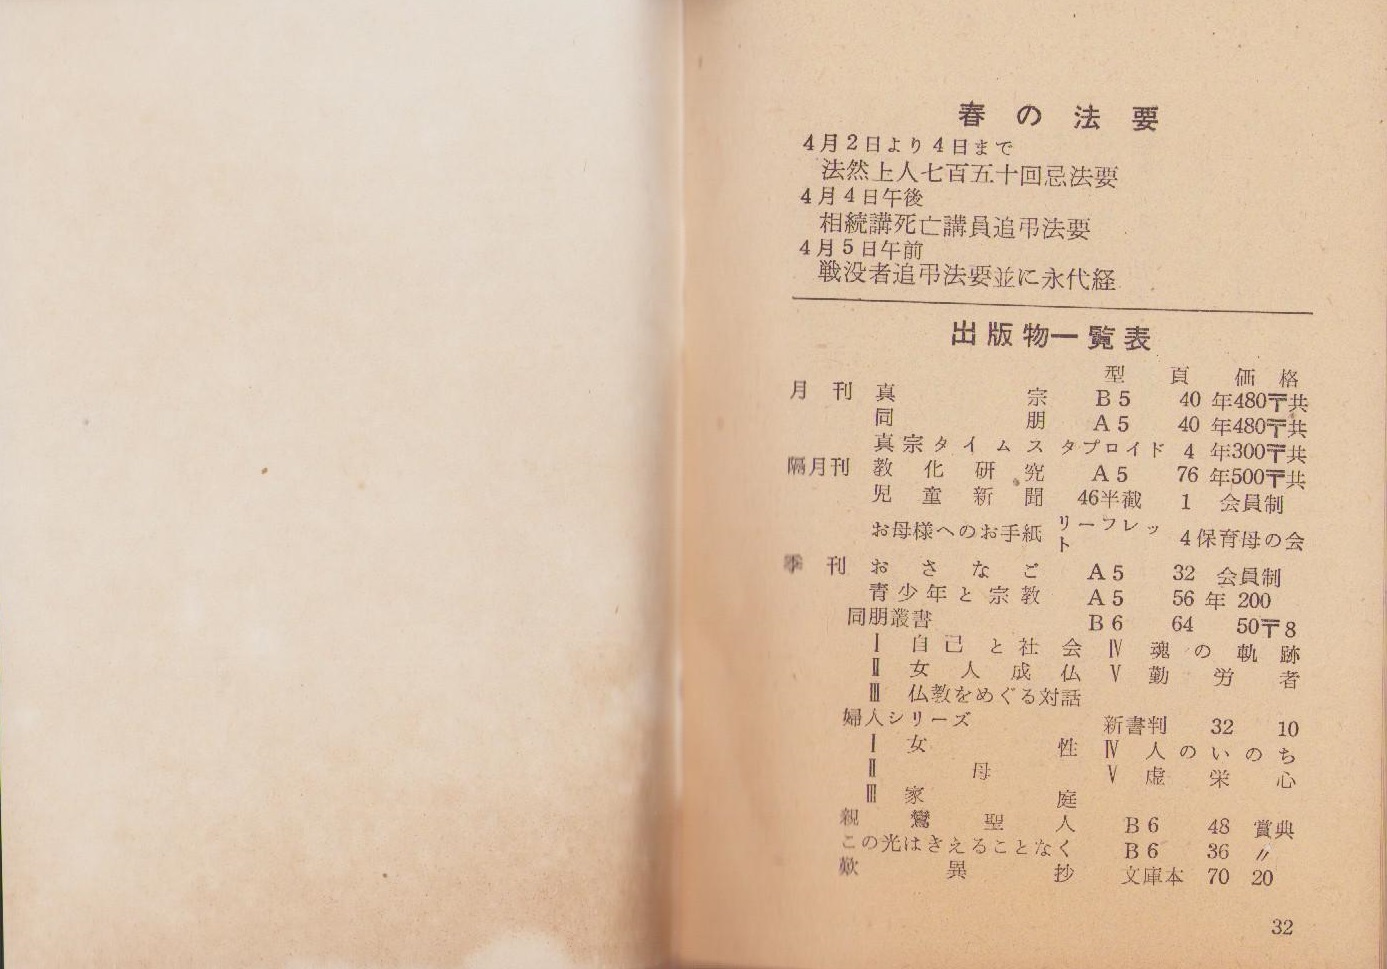 春の法要
4月2日より4日まで
法然上人七百五十回忌法要
4月4日午後
相続講死亡講員追弔法要
4月5日午前
戦没者追弔法要並に永代経
出版物一覧表
型 頁 価格
月刊 真宗 B5 40 年480〒共
同朋 A5 40 年480〒共
真宗タイムス タプロイド 4 年300〒共
隔月刊 教化研究 A5 76 年500〒共
児童新聞 46半截 1 会員制
お母様へのお手紙 リーフレット 4 保育母の会
季刊 おさなご A5 32 会員制
青少年と宗教 A5 56 年200
同朋叢書 B6 64 50〒8
Ⅰ 自己と社会 Ⅳ 魂の軌跡
Ⅱ 女人成仏 Ⅴ 勤労者
Ⅲ 仏教をめぐる対話
婦人シリーズ 新書判 32 10
Ⅰ 女性 Ⅳ 人のいのち
Ⅱ 母 Ⅴ 虚栄心
Ⅲ 家庭
親鸞聖人 B6 48 賞典
この光はきえることなく B6 36 〃
歎異抄 文庫本 70 20
32